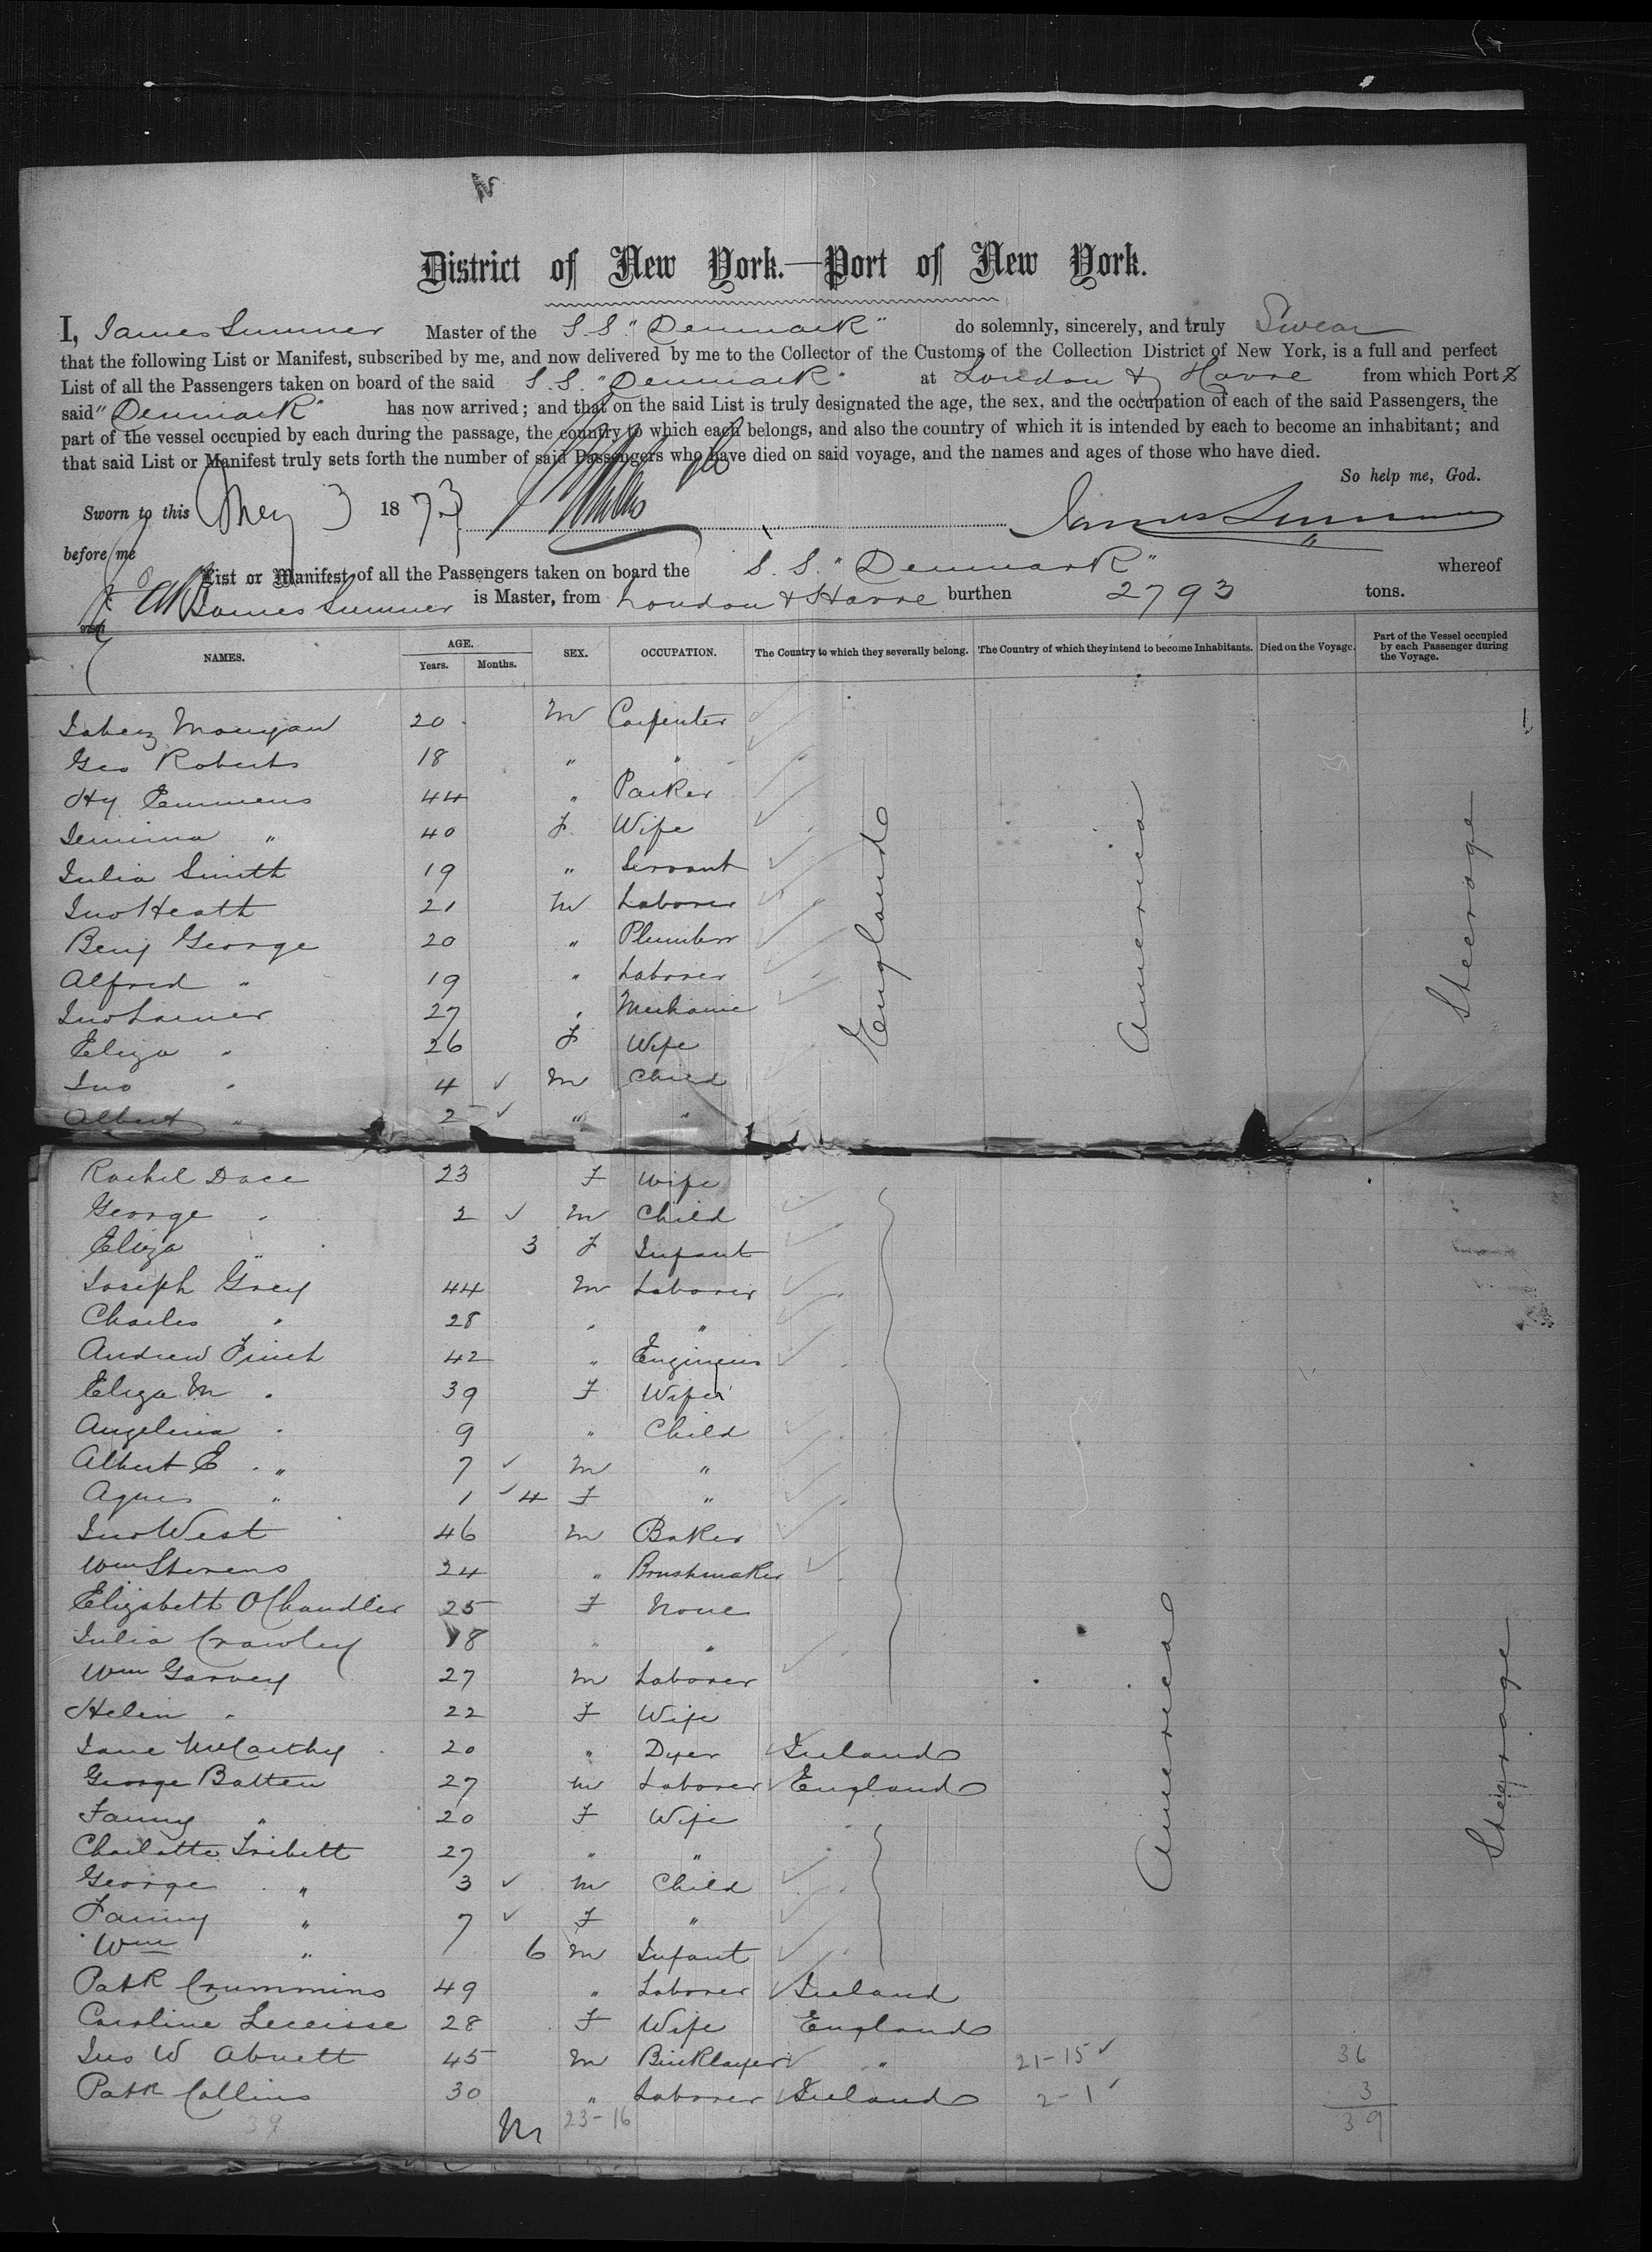 District of New York.—Port of New York.
I, James Sumner Master of the S.S. "Denmark" do solemnly, sincerely, and truly Swear
that the following List or Manifest, subscribed by me, and now delivered by me to the Collector of the Customs of the Collection District of New York, is a full and perfect
List of all the Passengers taken on board of the said S.S. "Denmark" at London & Havre from which Port s
said "Denmark" has now arrived; and that on the said List is truly designated the age, the sex, and the occupation of each of the said Passengers, the
part of the vessel occupied by each during the passage, the country to which each belongs, and also the country of which it is intended by each to become an inhabitant; and
that said List or Manifest truly sets forth the number of said Passengers who have died on said voyage, and the names and ages of those who have died.
So help me, God.
Sworn to this May 3 1873 James Sumner
before me
List or Manifest of all the Passengers taken on board the S.S. "Denmark" whereof
James Sumner is Master, from London & Havre burthen 2793 tons.
NAMES. AGE. Years. Months. SEX. OCCUPATION. The Country to which they severally belong. The Country of which they intend to become Inhabitants. Died on the Voyage. Part of the Vessel occupied by each Passenger during the Voyage.
Jabez 20 M Carpenter
Geo Roberts 18 " "
Hy Emmens 44 " Packer
Jemima " 40 F Wife
Julia Smith 19 " Servant
Jno Heath 21 M Laborer
Benj George 20 " Plumber
Alfred " 19 " Laborer
Jno 27 " Mechanic
Eliza " 26 F Wife
Jno " 4 M Child
Albert " 2 " "
England America Steerage
Rachel Dace 23 F Wife
George " 2 M Child
Eliza " 3 F Infant
Joseph Grey 44 M Laborer
Charles " 28 " "
Andrew Finch 42 " Engineer
Eliza M " 39 F Wife
Angelina " 9 " Child
Albert E " 7 M "
Agnes " 1 4 F "
Jno West 46 M Baker
Wm Stevens 24 " Brushmaker
Elizabeth O Chandler 25 F None
Julia Crawley 18 " "
Wm Garvey 27 M Laborer
Helen " 22 F Wife
Jane McCarthy 20 " Dyer Ireland
George Batten 27 M Laborer England
Fanny " 20 F Wife
Charlotte Tribett 27 " "
George " 3 M Child
Fanny " 7 F "
Wm " 6 M Infant
America Steerage
Patk Crummins 49 " Laborer Ireland
Caroline 28 F Wife England
Jno W Abnett 45 M Bricklayer " 21-15 36
Patk Collins 30 " Laborer Ireland 2-1 3
39 23-16 39